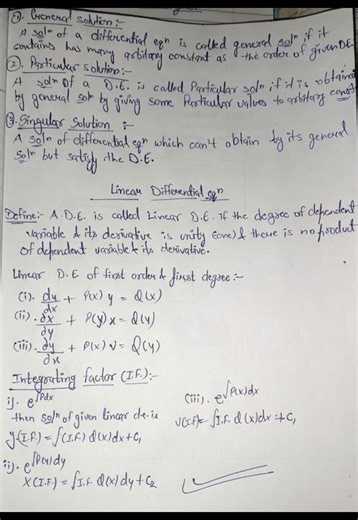 ①. General solution:-
A soln of a differential eqn is called general soln if it
contains has many arbitary constant as the order of given D.E.
②. Particular solution:-
A soln of a D.E. is called Particular soln if it is obtained
by general soln by giving some Particular values to arbitary const
③. Singular Solution :-
A soln of differential eqn which can't obtain by its general
soln but satisfy the D.E.
Linear Differential eqn
Define:- A D.E. is called Linear D.E. if the degree of dependent
variable & its derivative is unity (one) & there is no product
of dependent variable & its derivative.
Linear D.E of first order & first degree:-
(i). dy/dx + P(x) y = Q(x)
(ii). dx/dy + P(y) x = Q(y)
(iii). dy/dx + P(x) v = Q(y)
Integrating factor (I.F.):-
i). e^∫Pdx
then soln of given linear de. is
y(I.F.) = ∫(I.F.) Q(x)dx + C1
ii). e^∫P(y)dy
x(I.F.) = ∫I.F. Q(x)dy + C2
(iii). e^∫P(x)dx
v(I.F) = ∫I.F. Q(x)dx + C1